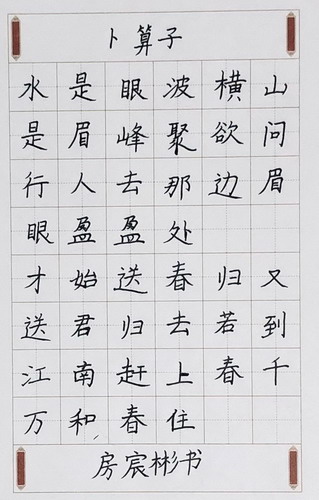 卜算子
水是眼波横山
是眉峰聚欲问
行人去那边眉
眼盈盈处
才始送春归又
送君归去若到
江南赶上春千
万和春住
房宸彬书